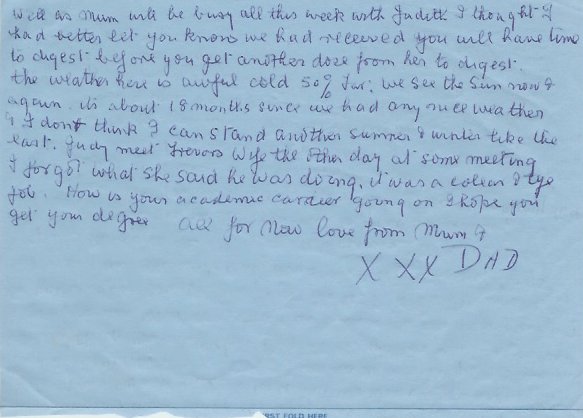 Well as Mum will be busy all this week with Judith I thought I
had better let you know we had received you will have time
to digest before you get another dose from her to digest.
the weather here is awful cold 50% Far: we see the Sun now &
again. its about 18 months since we had any nice weather
& I don't think I can stand another summer & winter like the
last. Judy meet Trevors Wife the other day at some meeting
I forgot what she said he was doing, it was a
job. How is your academic cardeer going on I hope you
get your degree all for Now love from Mum &
X XX DAD
FIRST FOLD HERE